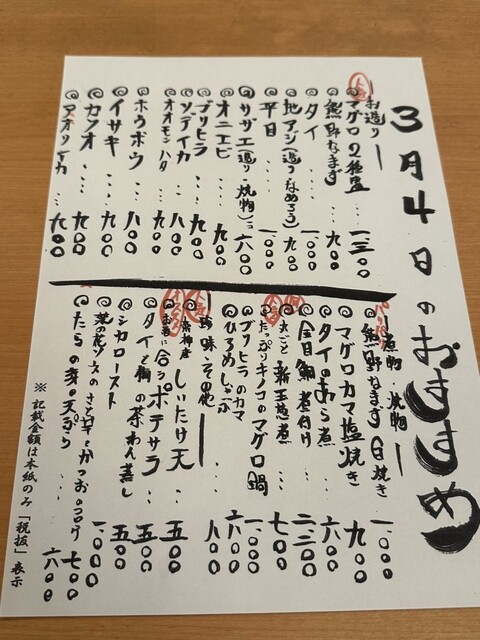 3月4日のおすすめ
お造り
マグロ2種盛 ‥‥ 一三〇〇
熊野なまず ‥‥ 九〇〇
タイ ‥‥ 一〇〇〇
地アジ(造り・なめろう) 九〇〇
平目 ‥‥ 一〇〇〇
サザエ(造り・焼物) 六〇〇
オニエビ ‥‥ 九〇〇
ブリヒラ ‥‥ 九〇〇
ソデイカ ‥‥ 八〇〇
オオモンハタ ‥‥ 九〇〇
ホウボウ ‥‥ 八〇〇
イサキ ‥‥ 八〇〇
カツオ ‥‥ 九〇〇
アオリイカ 九〇〇
煮物・焼物
熊野なまず白焼き 一〇〇〇
マグロカマ塩焼き 九〇〇
タイのあら煮
金目鯛煮付け ‥ 二三〇〇
丸ごと新玉葱煮 七〇〇
たっぷりキノコのマグロ鍋 一〇〇〇
ブリヒラのカマ 六〇〇
ひろめしゃぶ 八〇〇
珍味・その他
しいたけ天 ‥ 五〇〇
お酒に合うポテサラ ‥ 五〇〇
タイと鯛の茶わん蒸し 五〇〇
シカロースト ‥‥ 一〇〇〇
たらの芽の天ぷら ‥ 六〇〇
※ 記載金額は本紙のみ「税抜」表示